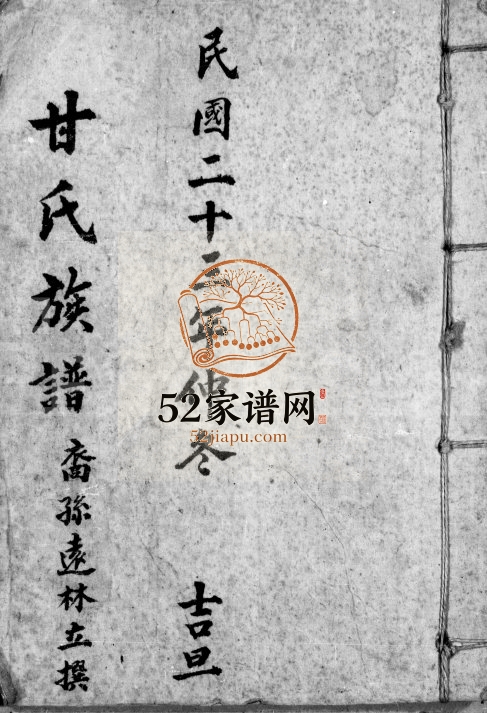 民國二十三年仲冬 吉旦
甘氏族譜 裔孫遠林立撰
52家谱网
52jiapu.com